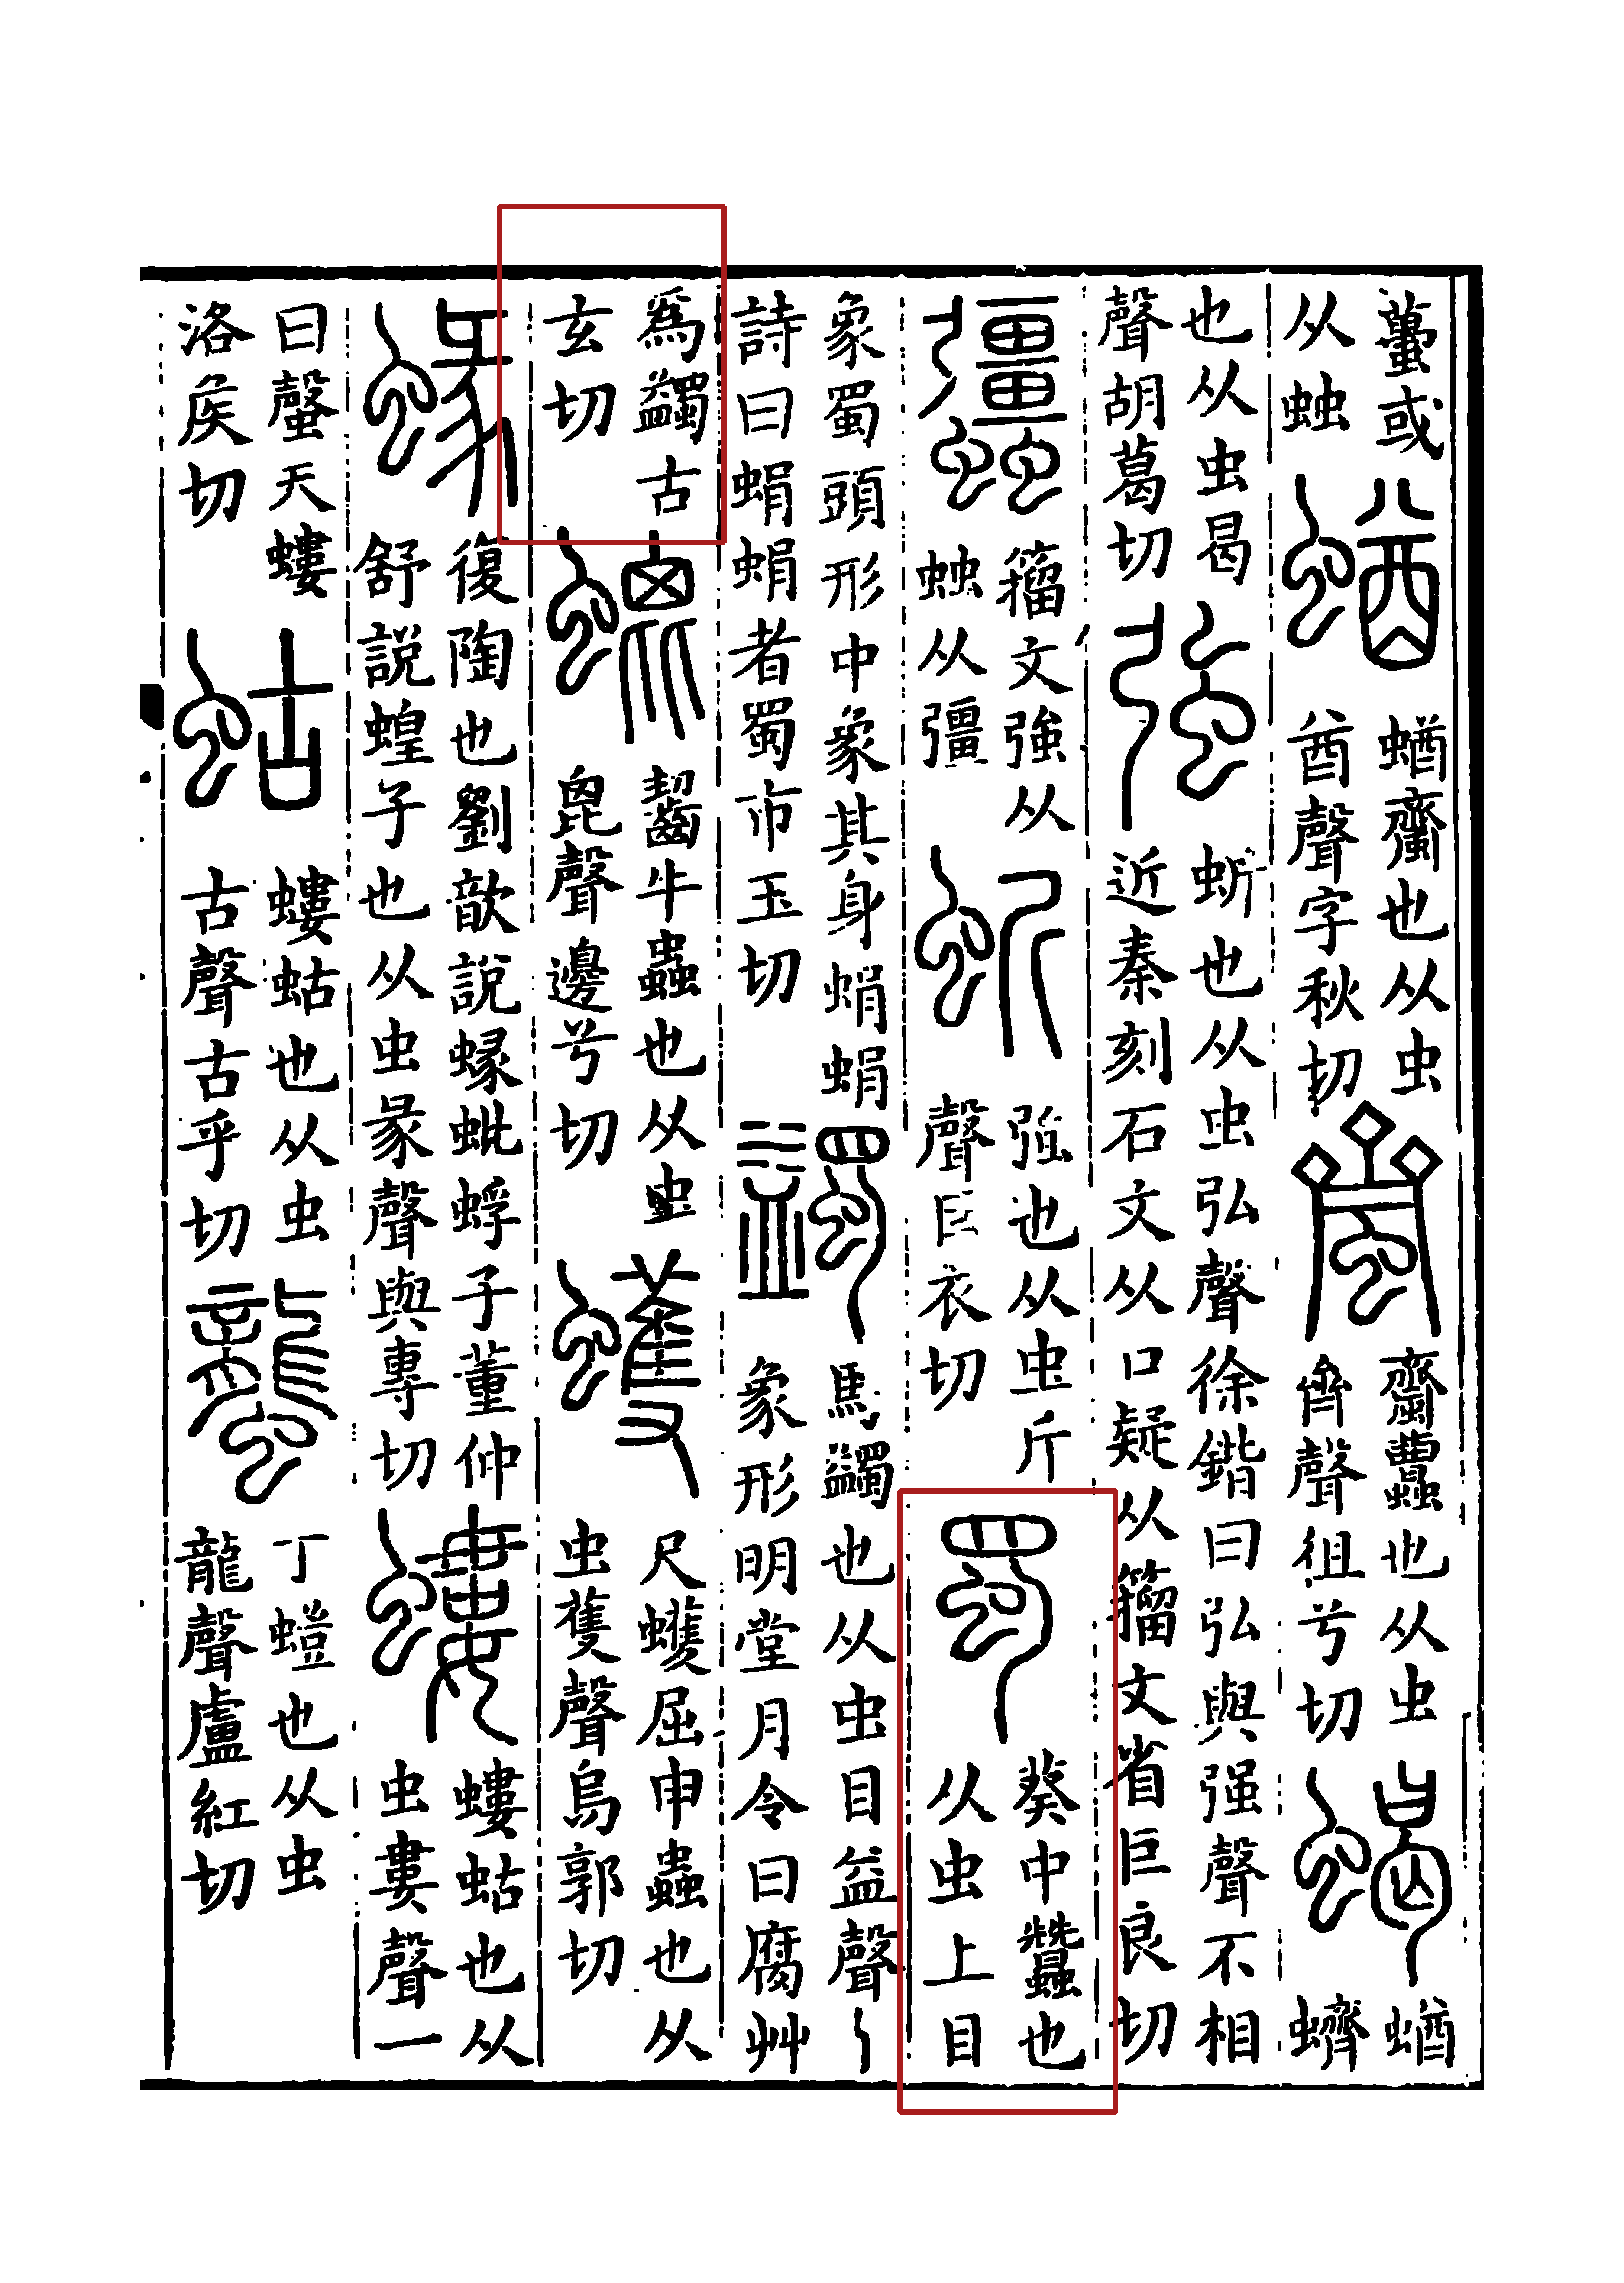 蠆或
从䖵
蝤
蝤𧓉也从虫
酋聲字秋切
𧓉
𧓉也从虫
齊聲徂兮切
蝎
蝤
蠐
也从虫曷
聲胡葛切
強
蚚也从虫弘聲徐鍇曰弘與强聲不相
近秦刻石文从口疑从籒文省巨良切
𧖑
籒文強从
䖵从彊
蚚
強也从虫斤
聲巨衣切
蜀
葵中蠶也
从虫上目
象蜀頭形中象其身蜎蜎
詩曰蜎蜎者蜀市玉切
蠲
馬蠲也从虫目益聲
象形明堂月令曰腐艸
爲蠲古
玄切
螕
齧牛蟲也从虫
𣬉聲邊兮切
蠖
尺蠖屈申蟲也从
虫蒦聲烏郭切
蝝
復陶也劉歆説蝝蚍蜉子董仲
舒説蝗子也从虫彖聲與專切
螻
螻蛄也从
虫婁聲一
曰螜天螻
洛矦切
蛄
螻蛄也从虫
古聲古乎切
蠪
丁螘也从虫
龍聲盧紅切